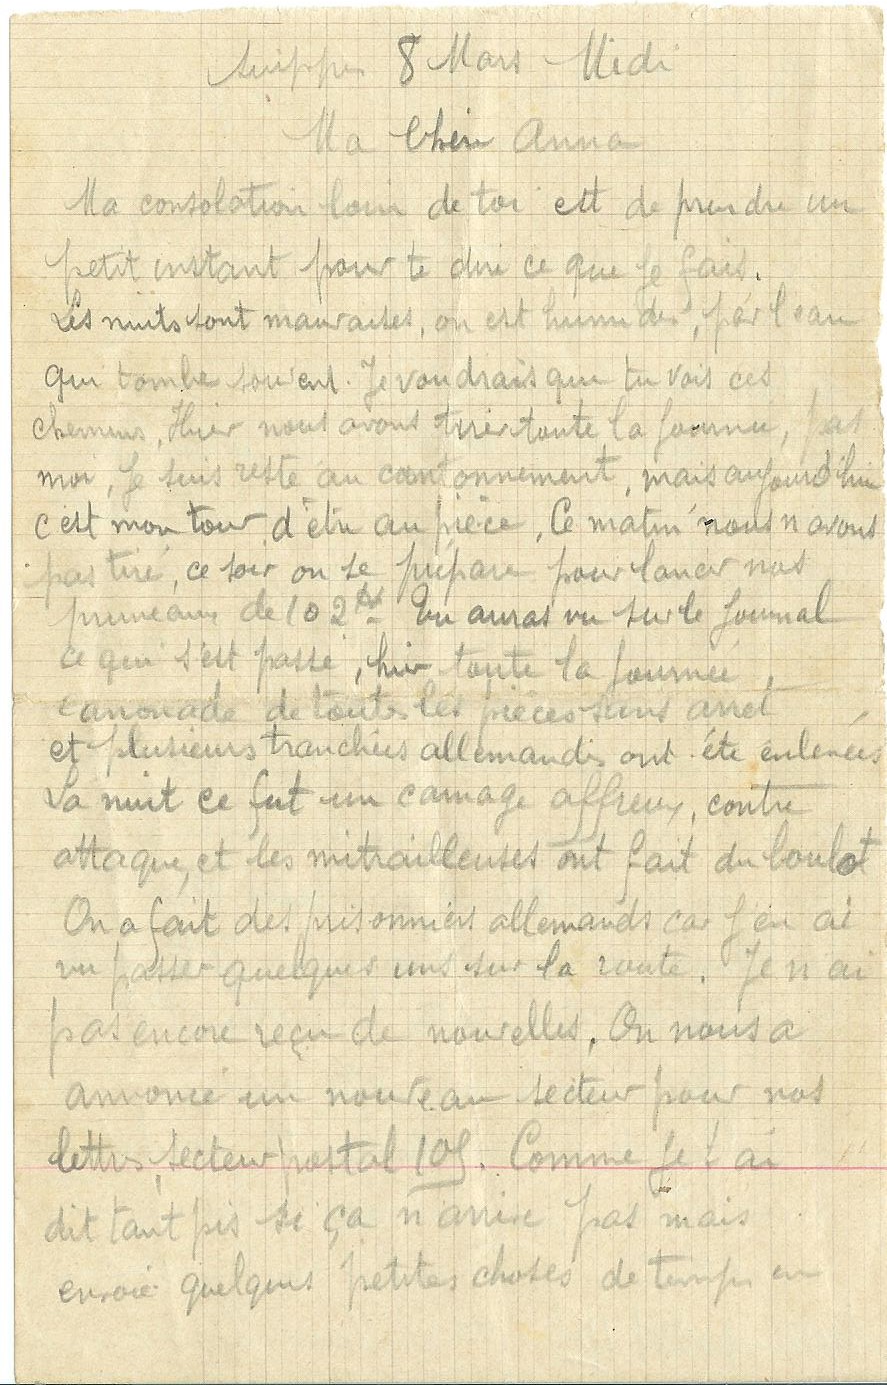 Suippes 8 Mars Midi
Ma Chère Anna
Ma consolation loin de toi est de prendre un
petit instant pour te dire ce que je fais.
Les nuits sont mauvaises, on est humides, par l'eau
qui tombe souvent. Je voudrais que tu vois ces
chemins, Hier nous avons tirer toute la journée, pas
moi, je suis resté au cantonnement, mais aujourd'hui
c'est mon tour d'être au pièce, Ce matin nous n'avons
pas tiré, ce soir on se prépare pour lancer nos
pruneaux de 102 Tu auras vu sur le journal
ce qui s'est passé, hier toute la journée,
canonade de toutes les pièces sans arret
et plusieurs tranchées allemandes ont été enlevées
La nuit ce fut un carnage affreux, contre
attaque, et les mitrailleuses ont fait du boulot
On a fait des prisonniers allemands car j'en ai
vu passer quelques uns sur la route. Je n'ai
pas encore reçu de nouvelles, On nous a
annoncé un nouveau secteur pour nos
lettres, secteur postal 105. Comme je t'ai
dit tant pis si ça n'arrive pas mais
envoie quelques petites choses de temps en